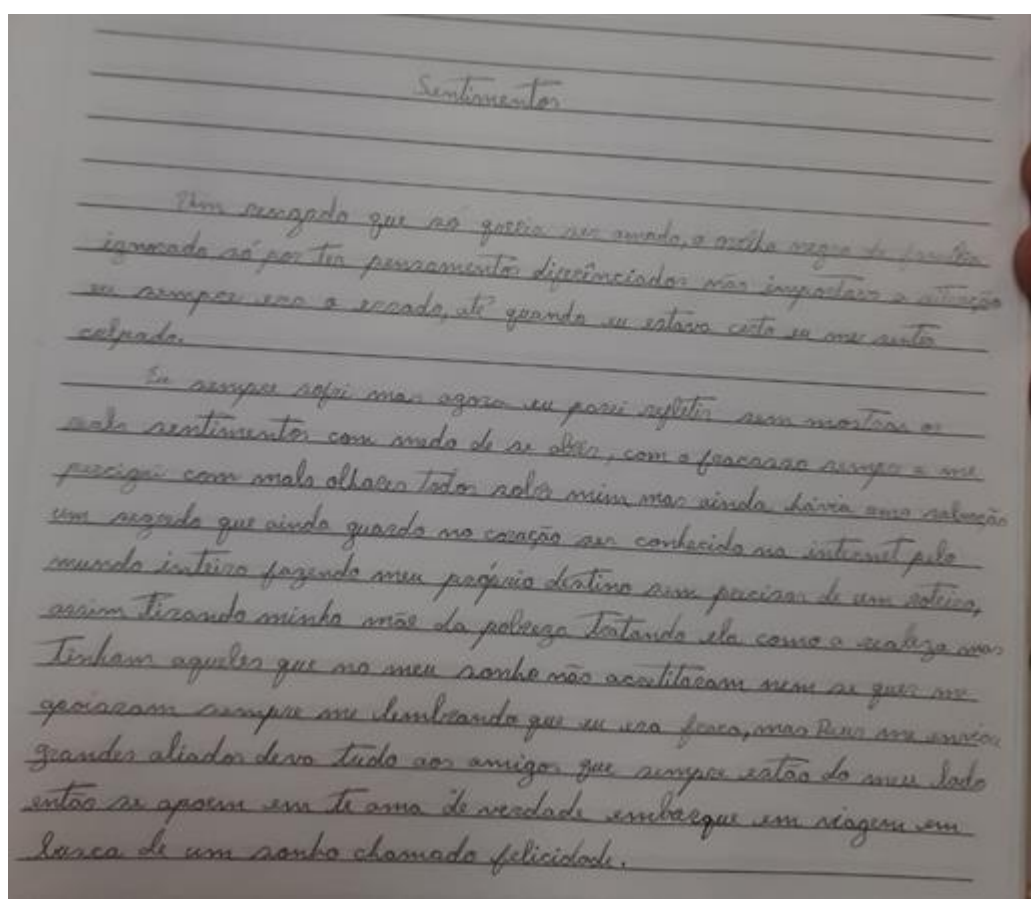 Sentimentos
Um rengado que só queria ser amado, a ovelha negra da família
ignorado só por ter pensamentos diferênciados não importava a situação
eu sempre era o errado, até quando eu estava certo eu me sentia
culpado.
Eu sempre sofri mas agora eu parei refletir sem mostrar os
reals sentimentos com medo de se abrir, com o fracasso sempre a me
percigui com mals olhares todos sobre mim mas ainda hávia uma salvação
um segredo que ainda guardo no coração ser conhecido na internet pelo
mundo inteiro fazendo meu próprio destino sem precisar de um roteiro,
assim tirando minha mãe da pobreza tratando ela como a realeza mas
Tinham aqueles que no meu sonho não acreditaram nem se quer me
apoiaram sempre me lembrando que eu era fraco, mas Deus me enviou
grandes aliados devo tudo aos amigos que sempre estão do meu lado
então se apoem em te ama de verdade embarque em viagem em
busca de um sonho chamado felicidade.